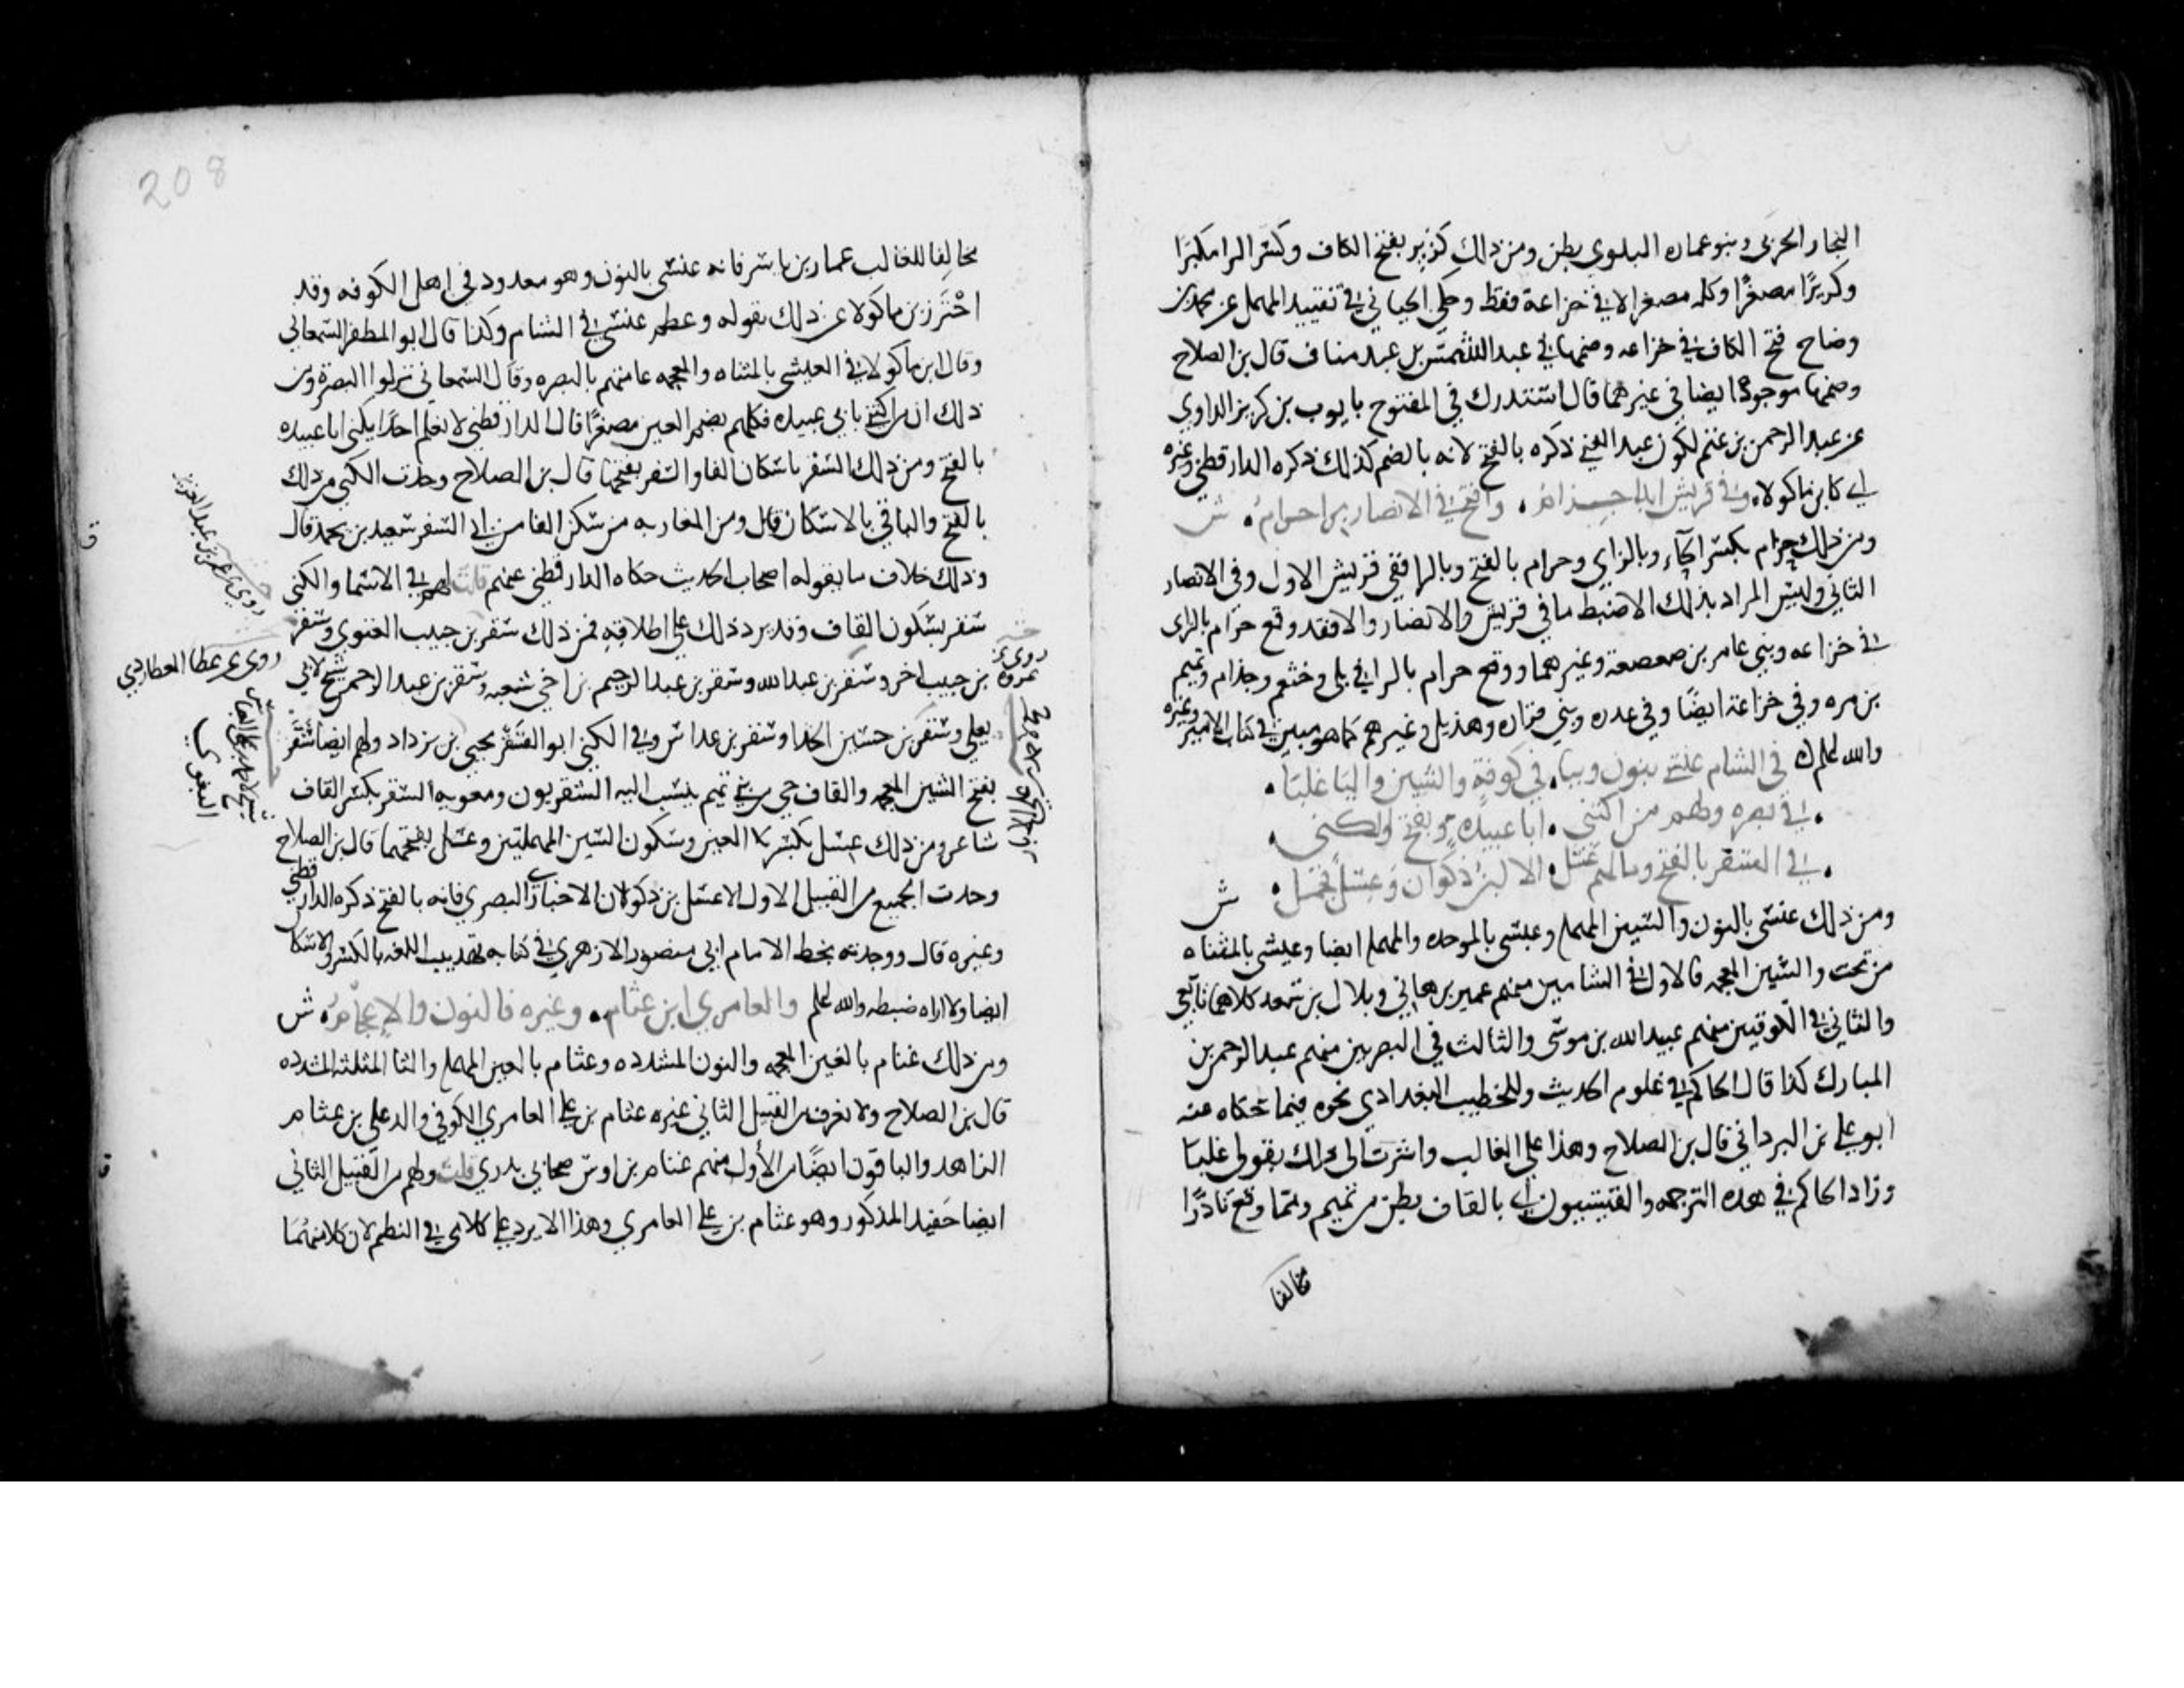 النجار الحربى وبنو عماره البلوى بطن ومن ذلك كَرِيز بفتح الكاف وكسر الرا مكبرا
وكريزًا مصغرًا وكله مصغر الا في خزاعة فقط وحكى الجياني في تقييد المهمل عن محمد بن
وضاح فتح الكاف في خزاعه وضمها في عبد شمس بن عبد مناف قال بن الصلاح
وضمها موجود ايضا في غيرهما قال استدرك في المفتوح بايوب بن كريز الراوي
عن عبد الرحمن بن غنم لكون عبد الغني ذكره بالفتح لانه بالضم كذلك ذكره الدارقطني وغيره
كابن ماكولا وفي قريش ابدا حِزام • وافتح في الانصار برا حرام • ش
ومن ذلك حِزام بكسر الحاء وبالزاي وحرام بالفتح وبالرا ففي قريش الاول وفي الانصار
الثاني وليس المراد بذلك الا ضبط ما في قريش والانصار والا فقد وقع حزام بالزاى
في خزاعه وبني عامر بن صعصعة وغيرهما ووقع حرام بالرا في بلى وخثعم وجذام وتميم
بن مره وفي خزاعة ايضًا وفي عذره وبني فزاره وهذيل وغيرهم كما هو مبين في كتاب الامير وغيره
والله اعلم في الشام عنسي بنون وببا • في كوفةٍ والشين واليا غلبا •
• في بصره ولهم من اكتنى • ابا عبيدةٍ وبفتح والكنى •
• في السفر بالفتح وما لهم عَسَل • الا ابن ذكوان وعِسْلٌ فجمل • ش
ومن ذلك عنسى بالنون والسين المهمله وعبسى بالموحده والمهمله ايضا وعيشى بالمثناه
من تحت والشين المعجمه فالاول في الشاميين منهم عمير بن هاني وبلال بن سعد كلاهما تابعي
والثاني في الكوفيين منهم عبيد الله بن موسى والثالث في البصريين منهم عبد الرحمن بن
المبارك كذا قال الحاكم في علوم الحديث وللخطيب البغدادي نحوه فيما حكاه عنه
ابو علي بن البرداني قال بن الصلاح وهذا على الغالب واشرت الى ذلك بقولى غلبا
وزاد الحاكم في هذه الترجمه والقيسيون بالقاف بطن من تميم ومما وقع نادرًا
مخالفا
208
مخالِفا للغالب عمار بن ياسر فانه عنسى بالنون وهو معدود في اهل الكوفه وقد
احْتَرز بن ماكولا عن ذلك بقوله وعظم عنسى في الشام وكذا قال ابو المظفر السمعاني
وقال ابن ماكولا في العيشى بالمثناه والمعجمه عامتهم بالبصره وقال السمعاني نزلوا البصرة ومن
ذلك ان من اكتنى بابي عبيده فكلهم بضم العين مصغرًا قال الدارقطني لا نعلم احدًا يكنى ابا عبيده
بالفتح ومن ذلك السَفْر باسكان الفا والسفر بفتحها قال بن الصلاح وجدت الكنى من ذلك
بالفتح والباقي بالاسكان قال ومن المغاربه من سكن الفا من ابي السفر سعيد بن يحمد قال
وذلك خلاف ما يقوله اصحاب الحديث حكاه الدارقطني عنهم قلت لهم في الاسما والكنى
سقر بسكون القاف وقد يرد ذلك على اطلاقه فمن ذلك سقر بن حبيب الغنوي وسقر
بن حبيب اخر وسقر بن عبد الله وسقر بن عبد الرحيم بن اخي شعبه وسقر بن عبد الرحمن شيخ لابي
يعلى وسقر بن حسين الحذا وسقر بن عداس وفي الكنى ابو السقر يحيى بن يزداد ولهم ايضا شَقَر
بفتح الشين المعجمه والقاف حي من بني تميم ينسب اليه الشقريون ومعويه الشقر بكسر القاف
شاعر ومن ذلك عِسْل بكسر العين وسكون السين المهملتين وعَسَل بفتحهما قال بن الصلاح
وجدت الجميع من القبيل الاول الا عسل بن ذكوان الاخباري البصري فانه بالفتح ذكره الدارقطني
وغيره قال ووجدته بخط الامام ابي منصور الازهري في كتابه تهذيب اللغه بالكسر والاسكان
ايضا ولا اراه ضبطه والله اعلم والعامري ابن عثام • وغيره فالنون والإعجام • ش
ومن ذلك غنام بالغين المعجمه والنون المشدده وعثام بالعين المهمله والثا المثلثه المشدده
قال بن الصلاح ولا نعرف من القبيل الثاني غيره عثام بن علي العامري الكوفي والد علي بن عثام
الزاهد والباقون ايضًا من الأول منهم غنام بن اوس صحابي بدري قلت ولهم من القبيل الثاني
ايضا حَفيد المذكور وهو عثام بن علي العامري وهذا لا يرد على كلامي في النظم لان كلا منهما
روى عن عمر بن عبد العزيز
روى عن عطا العطاردي
البغوي